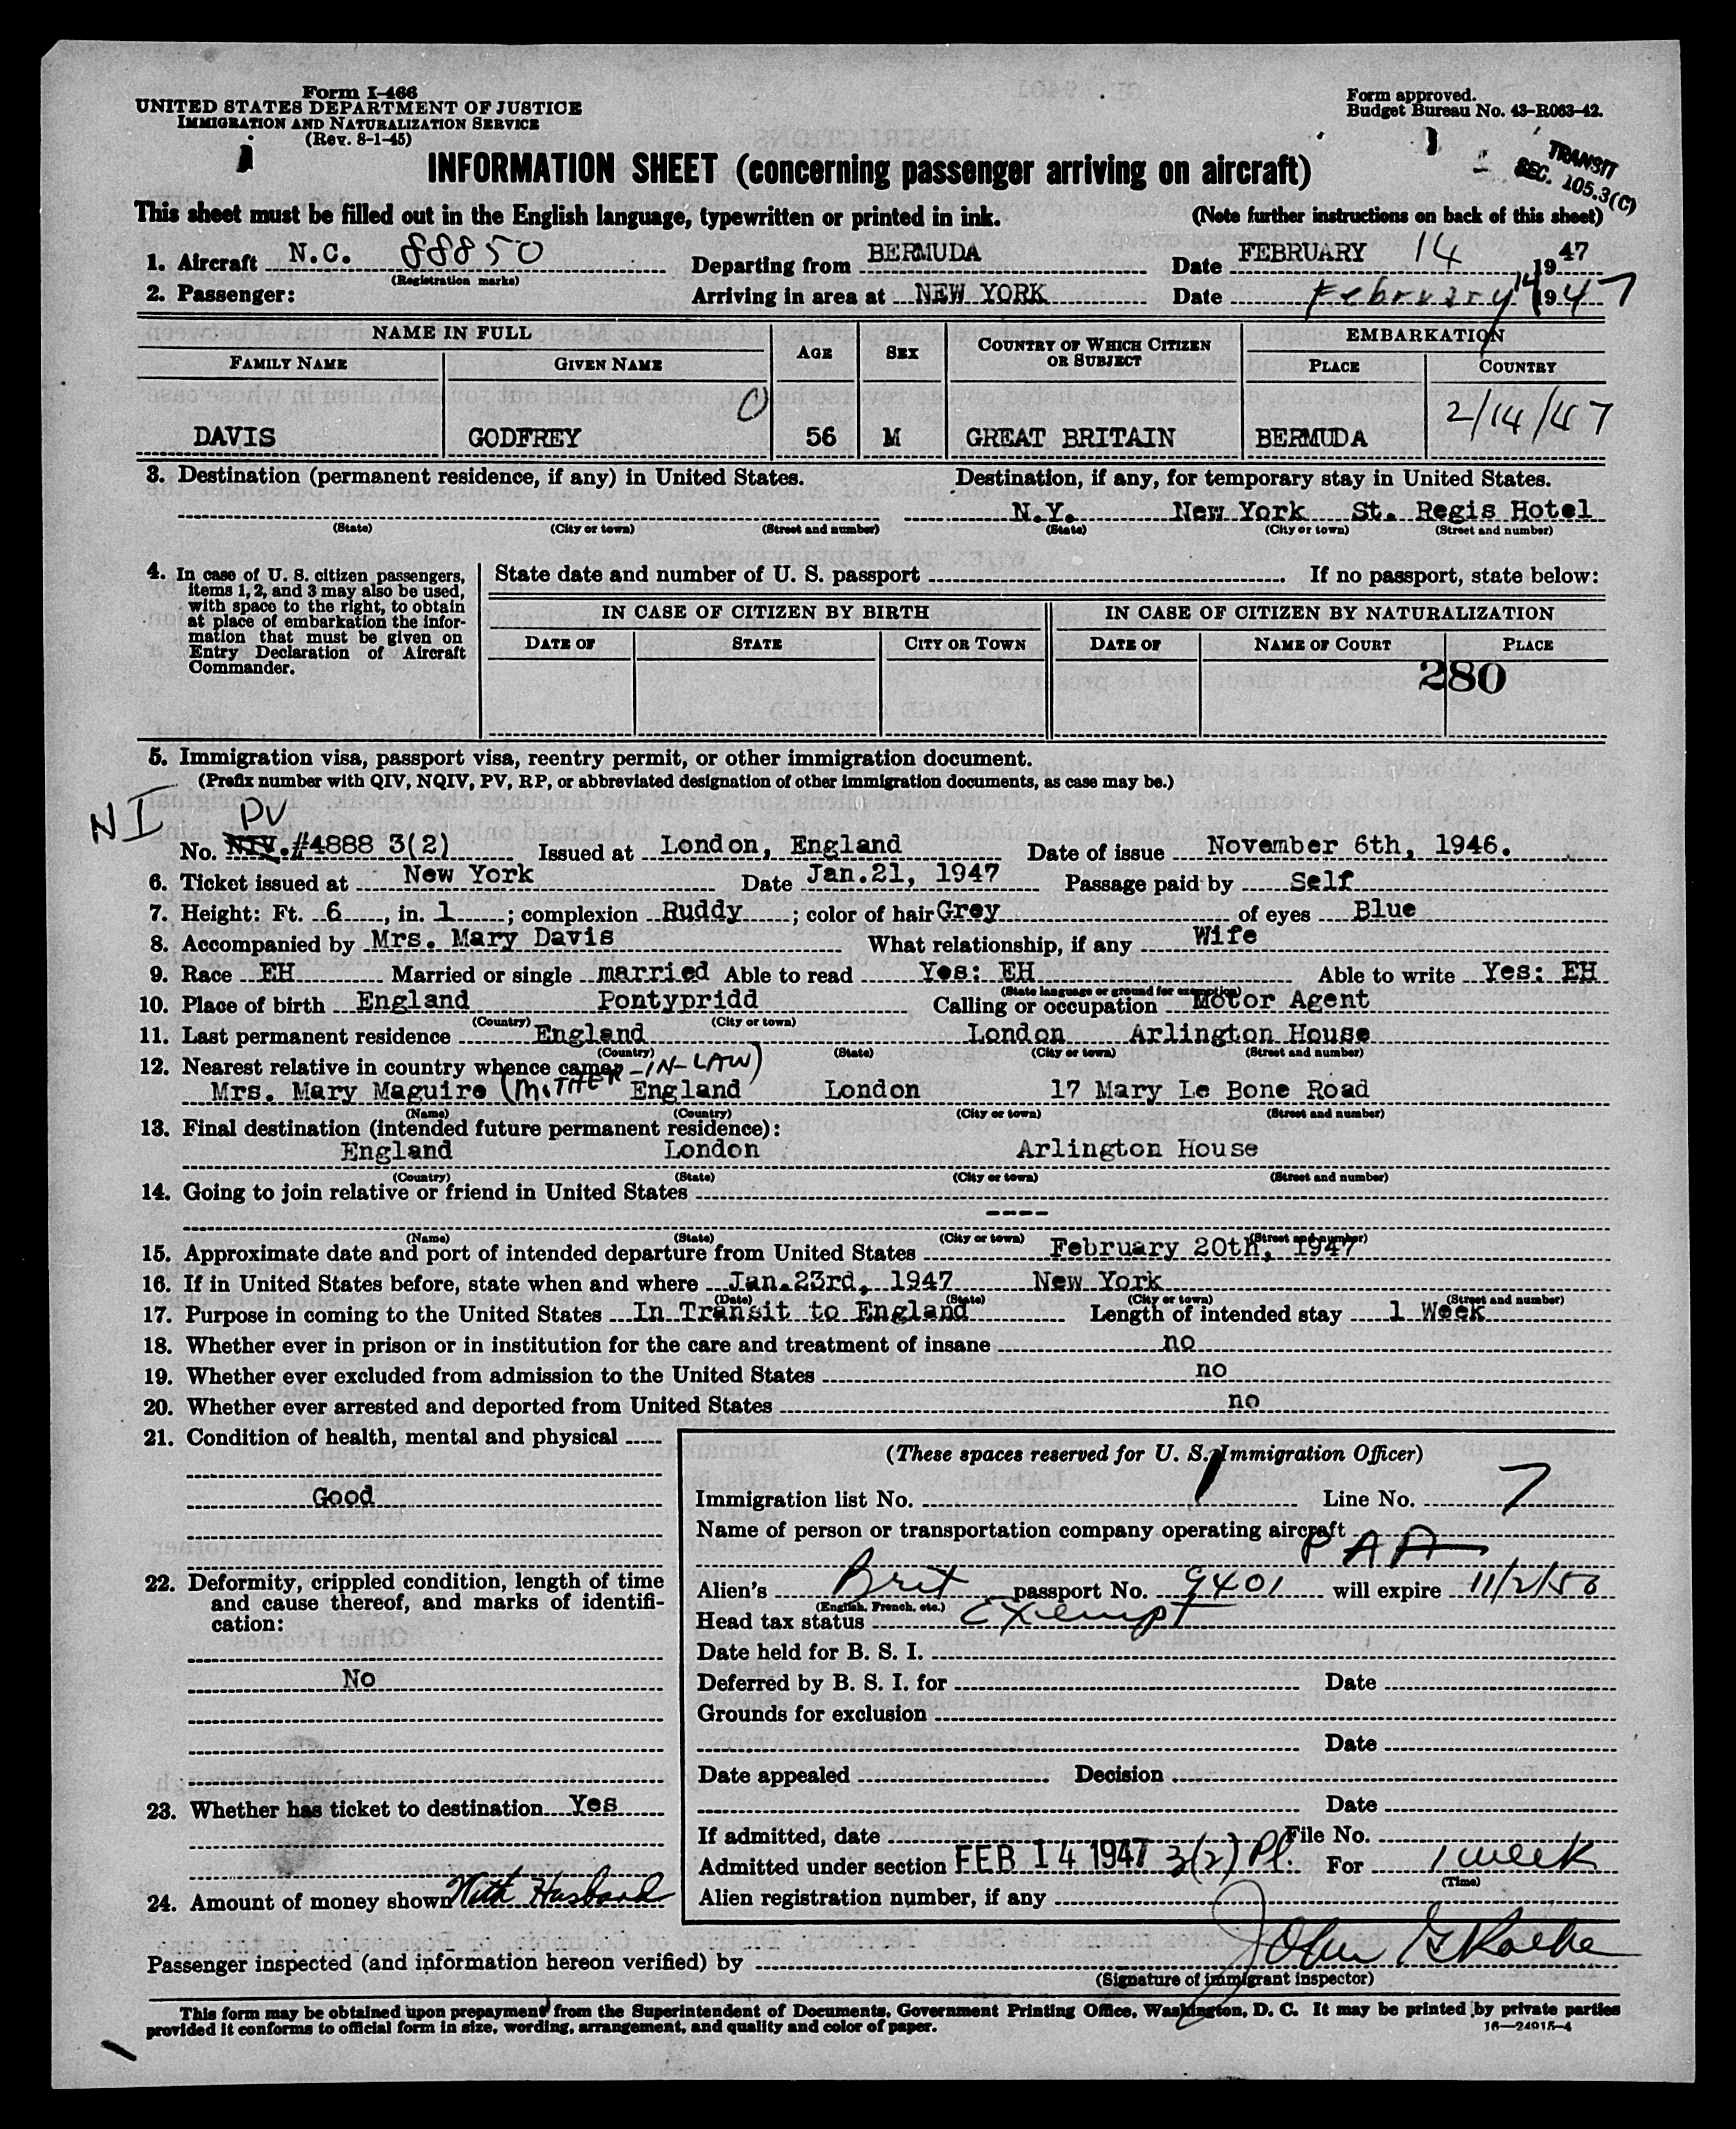 Form I-466
UNITED STATES DEPARTMENT OF JUSTICE
IMMIGRATION AND NATURALIZATION SERVICE
(Rev. 8-1-45)
Form approved.
Budget Bureau No. 43-R063-42.
TRANSIT
SEC. 105.3(C)
INFORMATION SHEET (concerning passenger arriving on aircraft)
This sheet must be filled out in the English language, typewritten or printed in ink. (Note further instructions on back of this sheet)
1. Aircraft N.C. 88850 Departing from BERMUDA Date FEBRUARY 14 1947
(Registration marks)
2. Passenger: Arriving in area at NEW YORK Date February 14 1947
NAME IN FULL AGE SEX COUNTRY OF WHICH CITIZEN OR SUBJECT EMBARKATION
FAMILY NAME GIVEN NAME PLACE COUNTRY
DAVIS GODFREY 0 56 M GREAT BRITAIN BERMUDA 2/14/47
3. Destination (permanent residence, if any) in United States. Destination, if any, for temporary stay in United States.
N.Y. New York St. Regis Hotel
(State) (City or town) (Street and number) (State) (City or town) (Street and number)
4. In case of U. S. citizen passengers, items 1, 2, and 3 may also be used, with space to the right, to obtain at place of embarkation the information that must be given on Entry Declaration of Aircraft Commander.
State date and number of U. S. passport If no passport, state below:
IN CASE OF CITIZEN BY BIRTH IN CASE OF CITIZEN BY NATURALIZATION
DATE OF STATE CITY OR TOWN DATE OF NAME OF COURT PLACE
280
5. Immigration visa, passport visa, reentry permit, or other immigration document.
(Prefix number with QIV, NQIV, PV, RP, or abbreviated designation of other immigration documents, as case may be.)
NI PV
No. NIV. #4888 3(2) Issued at London, England Date of issue November 6th, 1946.
6. Ticket issued at New York Date Jan.21, 1947 Passage paid by Self
7. Height: Ft. 6, in. 1; complexion Ruddy; color of hair Grey of eyes Blue
8. Accompanied by Mrs. Mary Davis What relationship, if any Wife
9. Race EH Married or single married Able to read Yes: EH Able to write Yes: EH
(State language or ground for exemption)
10. Place of birth England Pontypridd Calling or occupation Motor Agent
(Country) (City or town)
11. Last permanent residence England London Arlington House
(Country) (State) (City or town) (Street and number)
12. Nearest relative in country whence came
Mrs. Mary Maguire (MOTHER-IN-LAW) England London 17 Mary Le Bone Road
(Name) (Country) (City or town) (Street and number)
13. Final destination (intended future permanent residence):
England London Arlington House
(Country) (State) (City or town) (Street and number)
14. Going to join relative or friend in United States
----
(Name) (State) (City or town) (Street and number)
15. Approximate date and port of intended departure from United States February 20th, 1947
16. If in United States before, state when and where Jan.23rd, 1947 New York
(Date) (State) (City or town) (Street and number)
17. Purpose in coming to the United States In Transit to England Length of intended stay 1 Week
18. Whether ever in prison or in institution for the care and treatment of insane no
19. Whether ever excluded from admission to the United States no
20. Whether ever arrested and deported from United States no
21. Condition of health, mental and physical
Good
22. Deformity, crippled condition, length of time and cause thereof, and marks of identification:
No
23. Whether has ticket to destination Yes
24. Amount of money shown With Husband
(These spaces reserved for U. S. Immigration Officer)
Immigration list No. 1 Line No. 7
Name of person or transportation company operating aircraft
PAA
Alien's Brit passport No. 9401 will expire 11/2/50
(English, French, etc.)
Head tax status Exempt
Date held for B. S. I.
Deferred by B. S. I. for Date
Grounds for exclusion
Date
Date appealed Decision
Date
If admitted, date File No.
Admitted under section FEB 14 1947 3(2) Pl. For 1 week
(Time)
Alien registration number, if any
Passenger inspected (and information hereon verified) by John
(Signature of immigrant inspector)
This form may be obtained upon prepayment from the Superintendent of Documents, Government Printing Office, Washington, D. C. It may be printed by private parties
provided it conforms to official form in size, wording, arrangement, and quality and color of paper.
16—24915-4